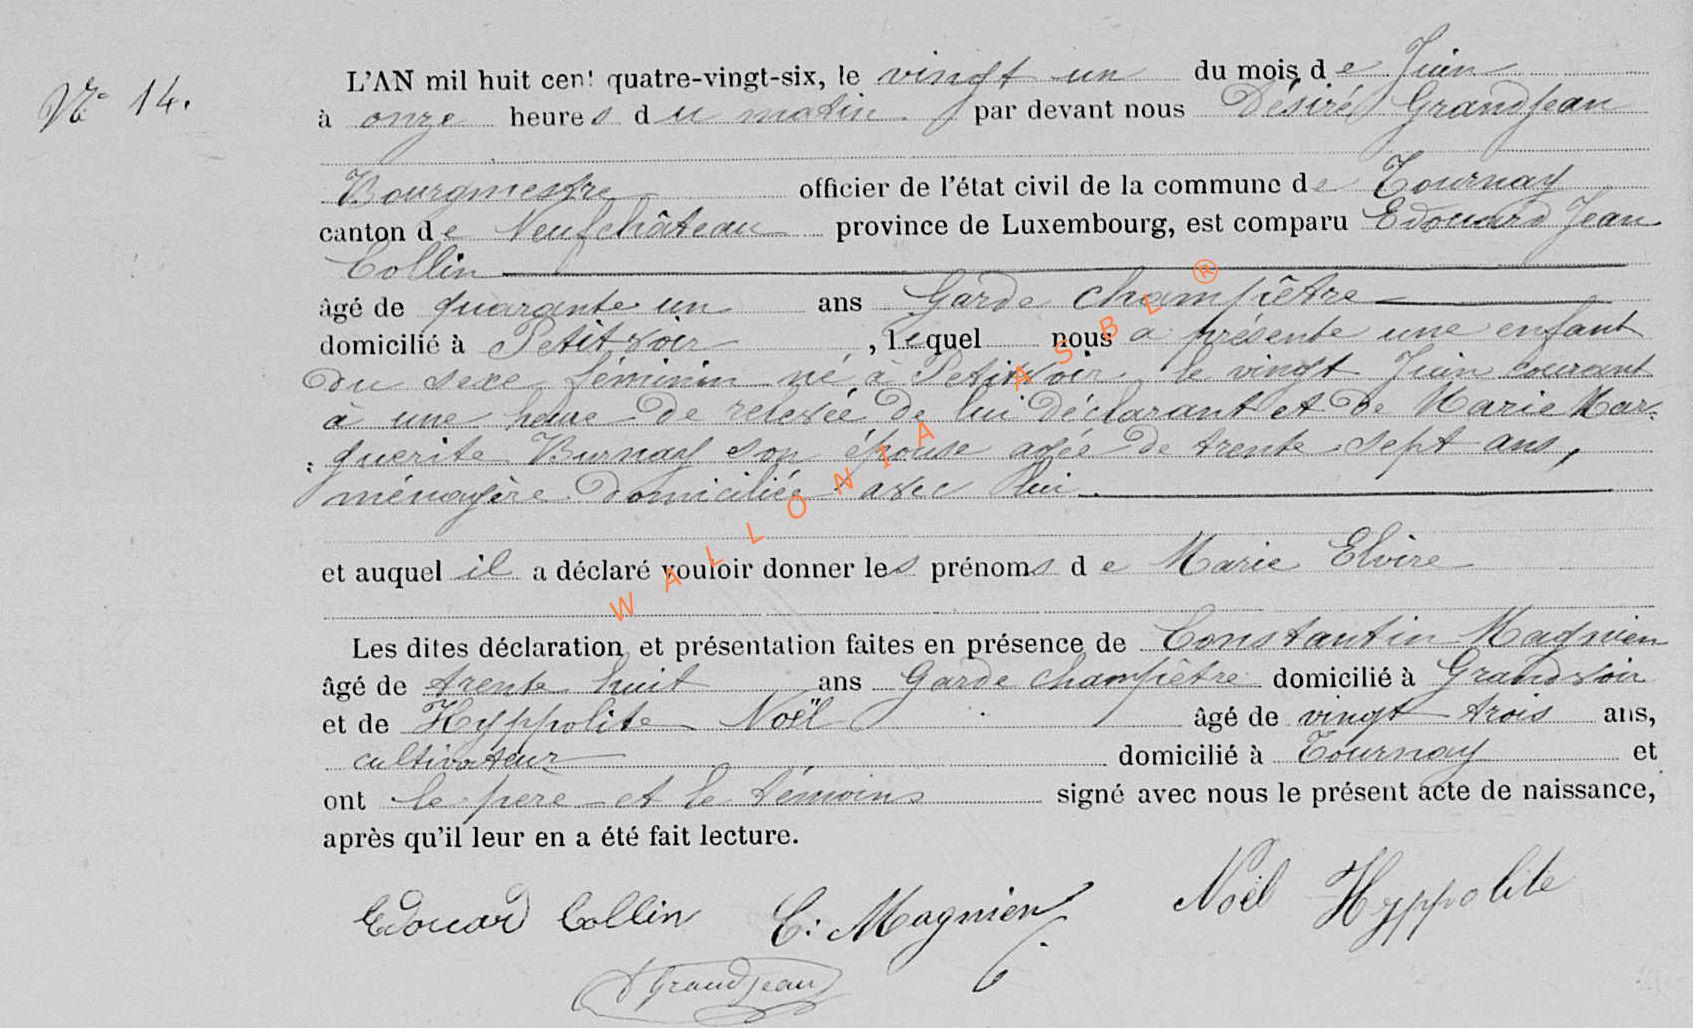 N° 14.
L'AN mil huit cent quatre-vingt-six, le vingt un du mois de Juin
à onze heures du matin par devant nous Désiré Grandjean
Bourgmestre officier de l'état civil de la commune de Tournay
canton de Neufchâteau province de Luxembourg, est comparu Edouard Jean
Collin
âgé de quarante un ans Garde champêtre
domicilié à Petitvoir, lequel nous a présente une enfant
du sexe féminin né à Petitvoir, le vingt Juin courant
à une heure de relevée de lui déclarant et de Marie Mar-
guerite Burnay son épouse agée de trente sept ans,
ménagère domiciliée avec lui.
et auquel il a déclaré vouloir donner les prénoms de Marie Elvire
Les dites déclaration et présentation faites en présence de Constantin Magnien
âgé de trente huit ans Garde champêtre domicilié à Grandvoir
et de Hyppolite Noël âgé de vingt trois ans,
cultivateur domicilié à Tournay et
ont le père et le témoins signé avec nous le présent acte de naissance,
après qu'il leur en a été fait lecture.
Edouard Collin C. Magnien Noël Hyppolite
D Grandjean
WALLONIA ASBL ®